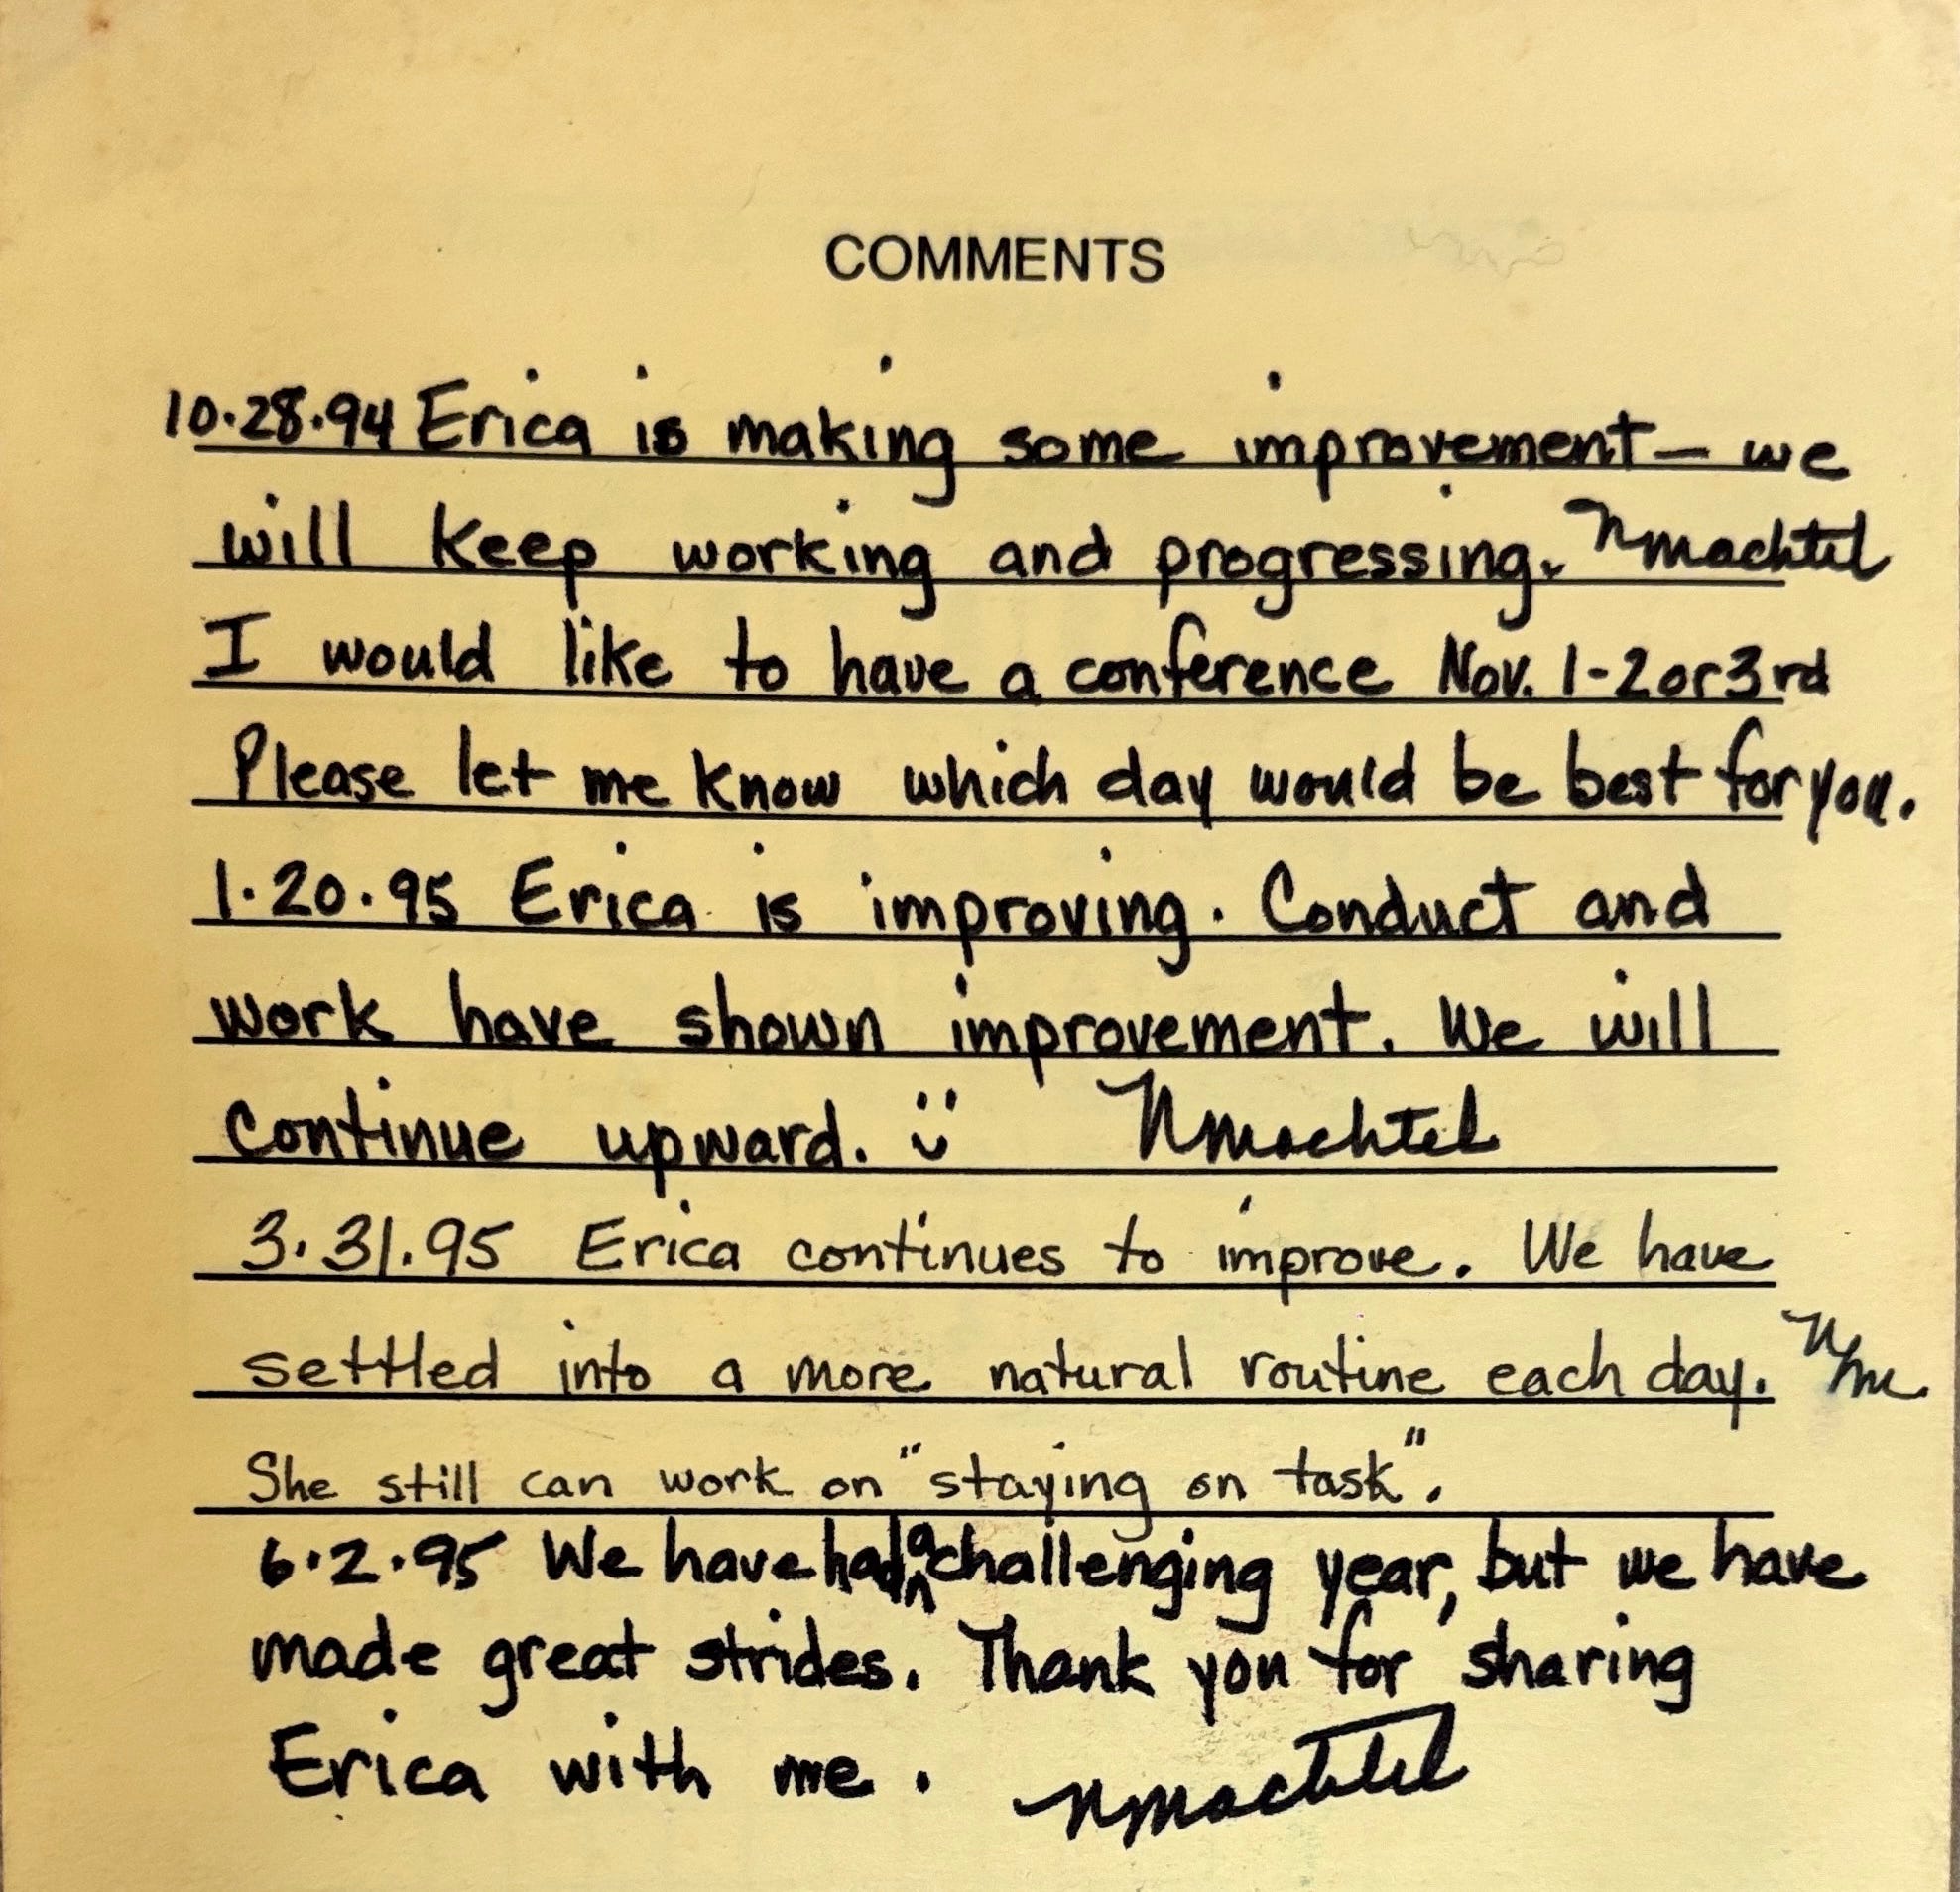 COMMENTS
10.28.94 Erica is making some improvement - we
will keep working and progressing. NMachtel
I would like to have a conference Nov. 1-2 or 3rd
Please let me know which day would be best for you.
1.20.95 Erica is improving. Conduct and
work have shown improvement. We will
continue upward. :) NMachtel
3.31.95 Erica continues to improve. We have
settled into a more natural routine each day. NM
She still can work on "staying on task".
6.2.95 We have had a challenging year, but we have
made great strides. Thank you for sharing
Erica with me. NMachtel